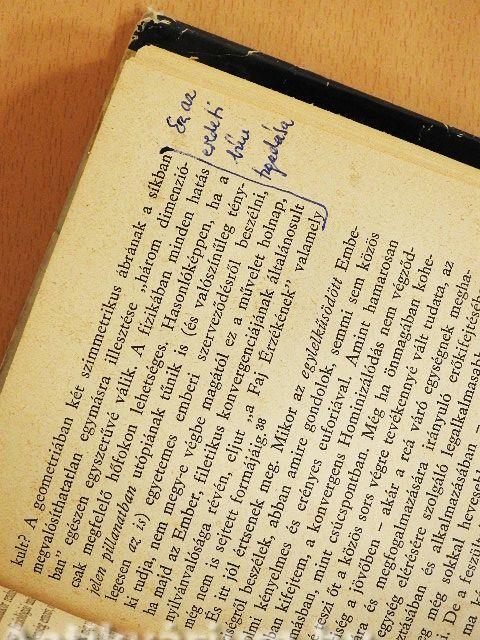 Ez az
eredeti
bűn
tagadása
kult? A geometriában két szimmetrikus ábrának a síkban
megvalósíthatatlan egymásra illesztése „három dimenzió-
ban" egészen egyszerűvé válik. A fizikában minden hatás
csak megfelelő hőfokon lehetséges. Hasonlóképpen, ha a
jelen pillanatban utópiának tűnik is (és valószínűleg tény-
legesen az is) egyetemes emberi szerveződésről beszélni,
ki tudja, nem megy-e végbe magától ez a művelet holnap,
ha majd az Ember, filetikus konvergenciájának általánosult
nyilvánvalósága révén, eljut „a Faj Érzékének" valamely
még nem is sejtett formájáig.38
És itt jól értsenek meg. Mikor az egylelkűsödött Embe-
riségről beszélek, abban amire gondolok, semmi sem közös
lmi kényelmes és erényes eufóriával. Amint hamarosan
ban kifejtem, a konvergens Hominizálódás nem végződ-
násban, mint csúcspontban. Még ha önmagában kohe-
eszi őt a közös sors végre tevékennyé vált tudata, az
ég a jövőben – akár a reá váró egységnek megha-
ára és megfogalmazására irányuló erőkifejtéséb
egység elérésére szolgáló legalkalmasabb
tásában és alkalmazásában –
s még sokkal hevesebb
i. De a feszült